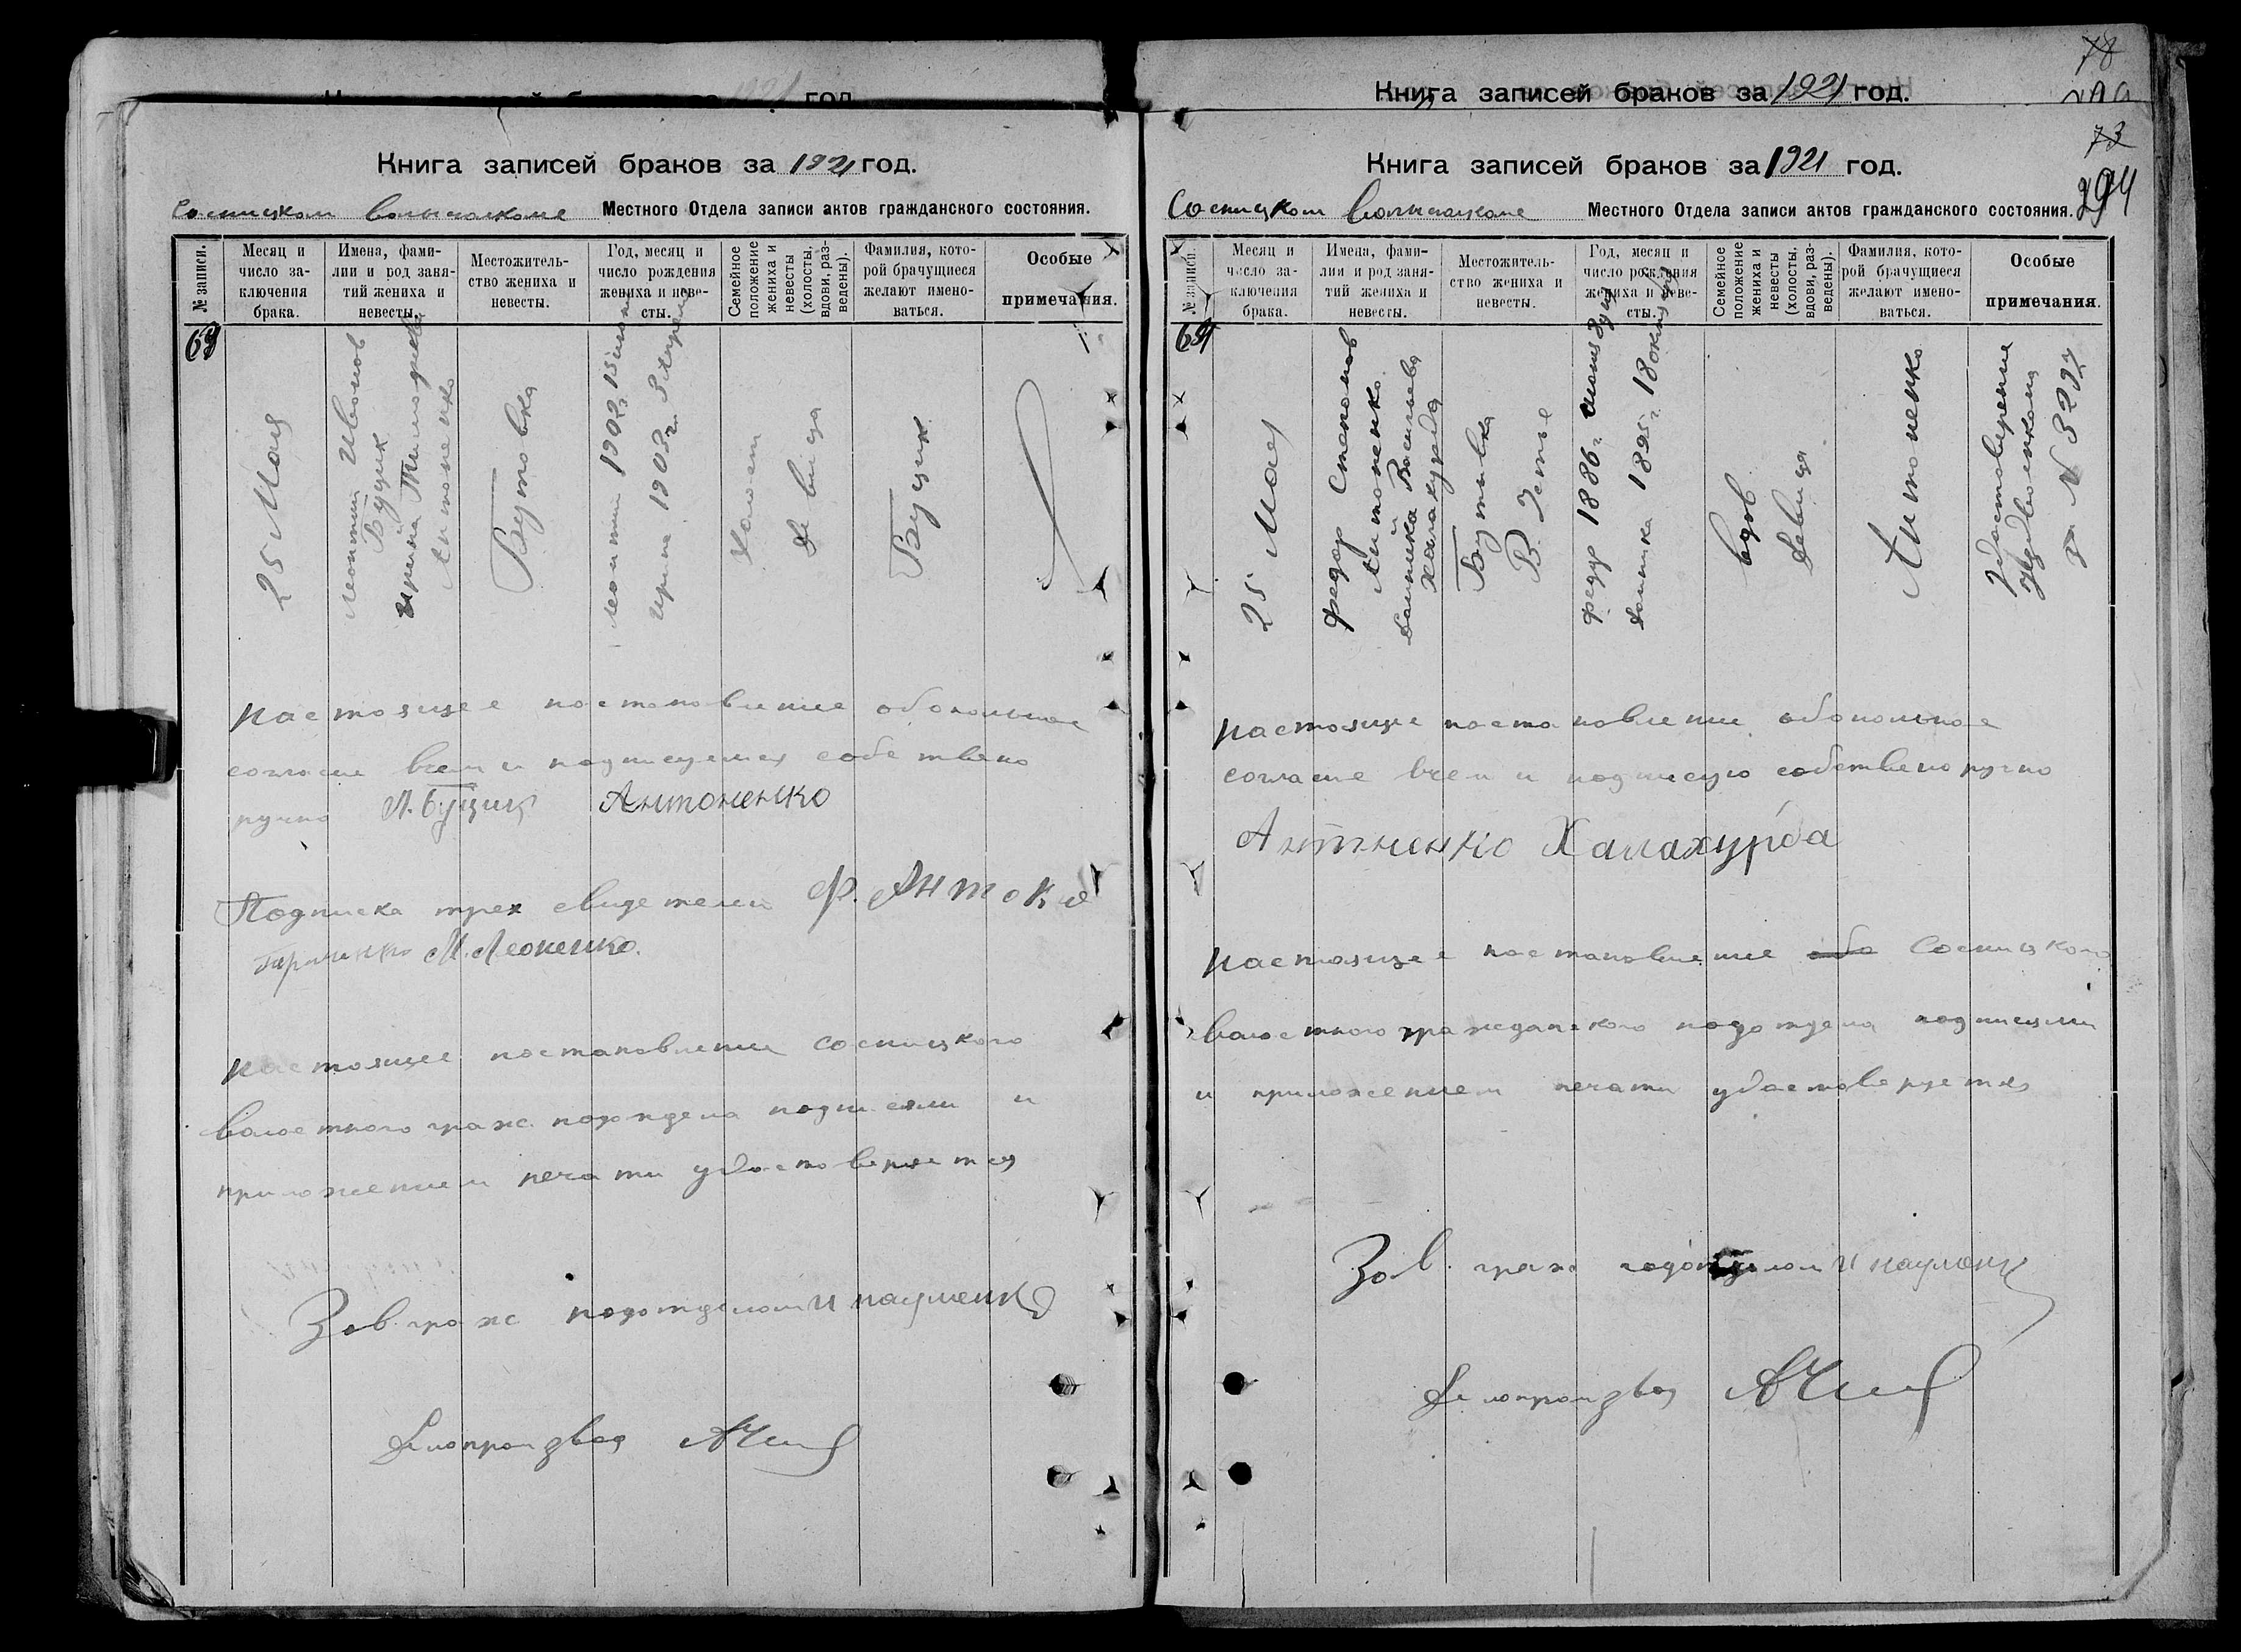 Книга записей браков за 1921 год.
78
Книга записей браков за 1921 год.
Сосницком волысполкоме Местного Отдела записи актов гражданского состояния.
№ записи.
Месяц и число заключения брака.
Имена, фамилии и род занятий жениха и невесты.
Местожительство жениха и невесты.
Год, месяц и число рождения жениха и невесты.
Семейное положение жениха и невесты (холосты, вдовы, разведены).
Фамилия, которой брачущиеся желают именоваться.
Особые примечания.
25 Мая
Леонтий Иванов
Буцик
и
Ирина Тимофеева
Антоненко
Бутовка
Леонтий 1902 г. 15 июня
Ирина 1903 г. 5 Апреля
Холост
Девица
Буцик
Настоящее постановление обопольное
согласие вчем и подписуемся собствено
ручно Л. Буцик Антоненко
Подписка трех свидетелей Ф. Антоне
М. Леоненко.
Настоящее постановление Сосницкого
волостного граж. подотдела подписями и
приложением печати удостоверяется
Зав. граж подотделом И Науменко
Делопроизвод
73
294
Книга записей браков за 1921 год.
Сосницком волысполкоме Местного Отдела записи актов гражданского состояния.
№ записи.
Месяц и число заключения брака.
Имена, фамилии и род занятий жениха и невесты.
Местожительство жениха и невесты.
Год, месяц и число рождения жениха и невесты.
Семейное положение жениха и невесты (холосты, вдовы, разведены).
Фамилия, которой брачущиеся желают именоваться.
Особые примечания.
25 Мая
Федор Степанов
Антоненко
и
Домника Васильева
Халахурда
Бутовка
В. Устье
Федор 1886 г. июня
Домника 1895 г. 18 октября
вдов
Девица
Антоненко
Удостоверение
за № 3232
Настояще постановление обопольное
согласие вчем и подписую собствено ручно
Антненко Халахурда
Настоящее постановление обо Сосницкого
волостного гражданского подотдела подписями
и приложением печати удостоверяется
Зав. граж подотделом И Науменк
Делопроизвод